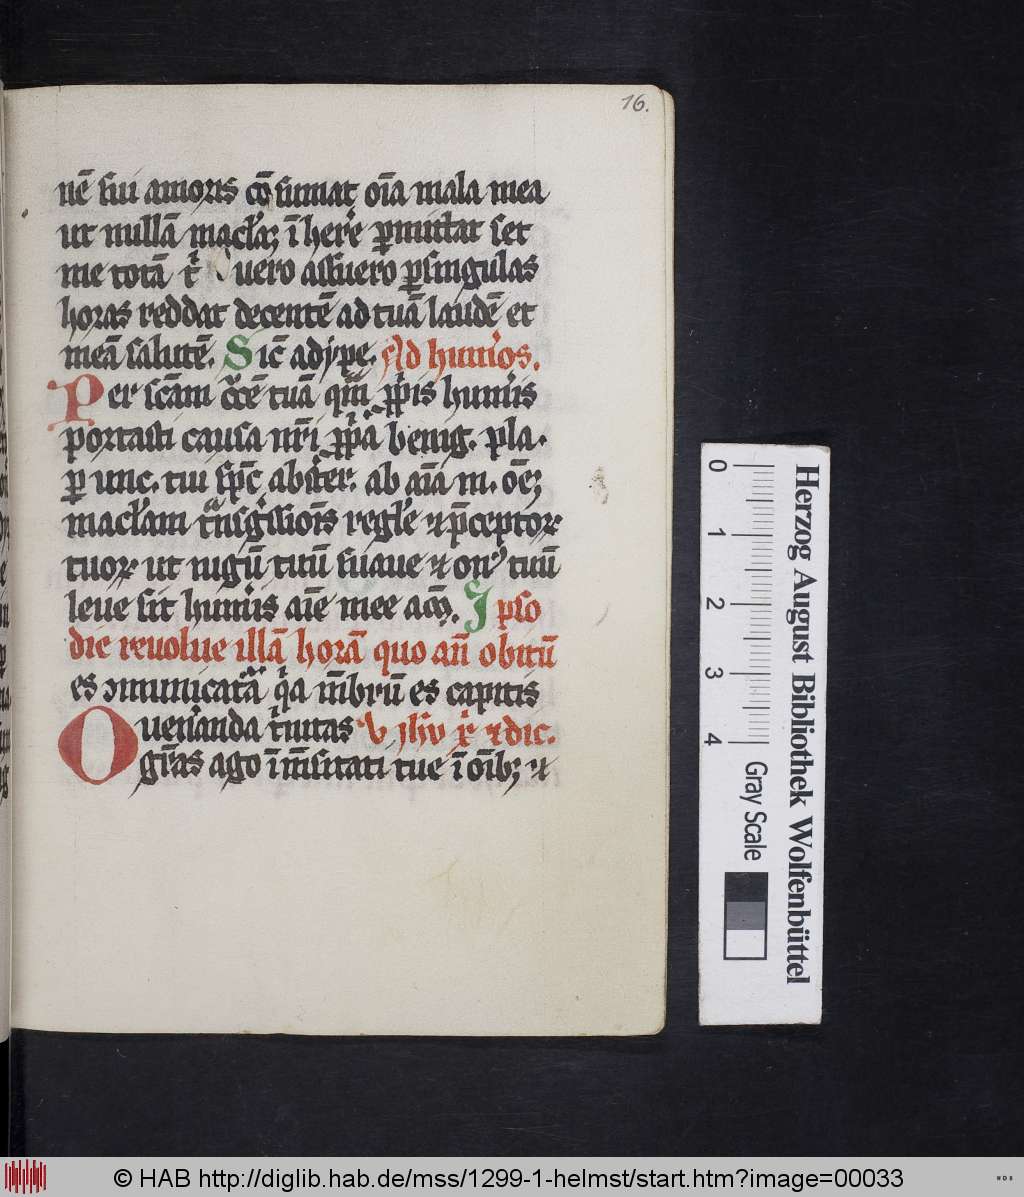 16.
nē sui amoris cōsumat oīa mala mea
ut nullā macl'aꝫ ī here p̱mittat set
me totā t vero assuero p̱singulas
horas reddat decentē ad tuā laudē et
meā salutē. Sic̄ adype. Ad humos.
Per scām c̄cē tuā qm̄ ꝓpis hum̄is
portasti causa nr̄i ꝓpa benig. pla.
ꝑ unc. tui sp̄c abster. ab aīa m. oēꝫ
macl'am t̄nsḡssiōis regl'e ⁊ p̄ceptoꝝ
tuoꝝ ut iugū tuū suaue ⁊ on' tuū
leue sit hum̄is aīe mee am̄. Ipso
die reuolue illā horā quo añ obitū
es ↄmunicata q̄a m̄brū es capitis
O uen'anda t̄nitas V ihū x̄ ⁊ dic.
gr̄as ago īm̄sitati tue ī oīb; ⁊
0
1
2
3
4
Gray Scale
Herzog August Bibliothek Wolfenbüttel
© HAB http://diglib.hab.de/mss/1299-1-helmst/start.htm?image=00033